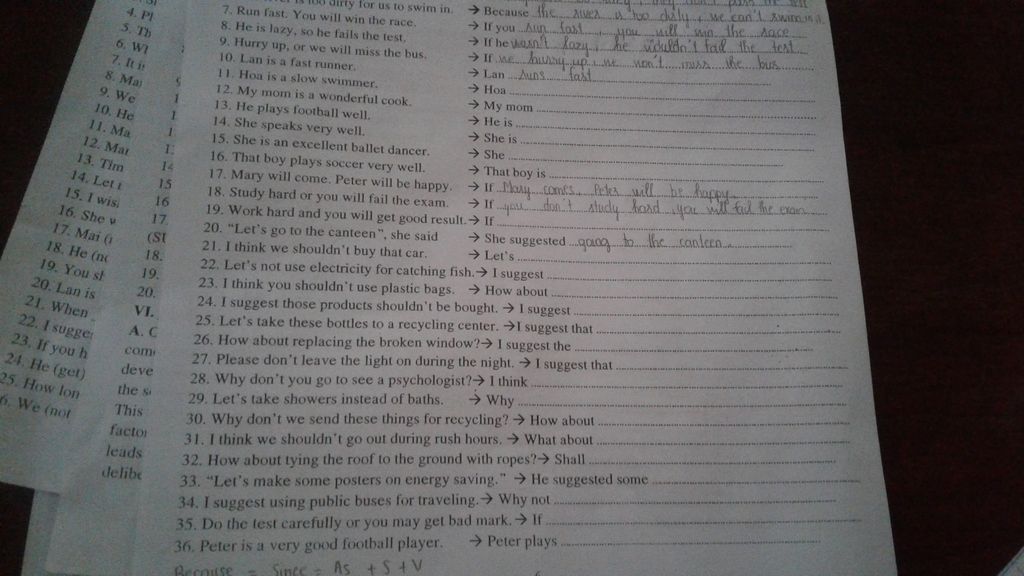 4. Pl
5. Th
6. Wl
7. It i
8. Ma
9. We
10. He
11. Ma
12. Mar
13. Tim
14. Let t
15. I wis
16. She w
17. Mai (i
18. He (no
19. You sh
20. Lan is
21. When
22. I sugge
23. If you h
24. He (get)
25. How lon
6. We (not
14
15
16
17.
(St
18.
19.
20.
VI.
A. C
com
deve
the s
This
factor
leads
delibe
is too dirty for us to swim in. → Because the river is too dirty, we can't swim in it
7. Run fast. You will win the race. → If you run fast, you will win the race
8. He is lazy, so he fails the test. → If he wasn't lazy, he wouldn't fail the test
9. Hurry up, or we will miss the bus. → If we hurry up, we won't miss the bus
10. Lan is a fast runner. → Lan runs fast
11. Hoa is a slow swimmer. → Hoa
12. My mom is a wonderful cook. → My mom
13. He plays football well. → He is
14. She speaks very well. → She is
15. She is an excellent ballet dancer. → She
16. That boy plays soccer very well. → That boy is
17. Mary will come. Peter will be happy. → If Mary comes, Peter will be happy
18. Study hard or you will fail the exam. → If you don't study hard, you will fail the exam
19. Work hard and you will get good result. → If
20. “Let's go to the canteen”, she said → She suggested going to the canteen.
21. I think we shouldn't buy that car. → Let's
22. Let's not use electricity for catching fish. → I suggest
23. I think you shouldn't use plastic bags. → How about
24. I suggest those products shouldn't be bought. → I suggest
25. Let's take these bottles to a recycling center. → I suggest that
26. How about replacing the broken window? → I suggest the
27. Please don't leave the light on during the night. → I suggest that
28. Why don't you go to see a psychologist? → I think
29. Let's take showers instead of baths. → Why
30. Why don't we send these things for recycling? → How about
31. I think we shouldn't go out during rush hours. → What about
32. How about tying the roof to the ground with ropes? → Shall
33. “Let's make some posters on energy saving.” → He suggested some
34. I suggest using public buses for traveling. → Why not
35. Do the test carefully or you may get bad mark. → If
36. Peter is a very good football player. → Peter plays
Because = Since = As + S + V